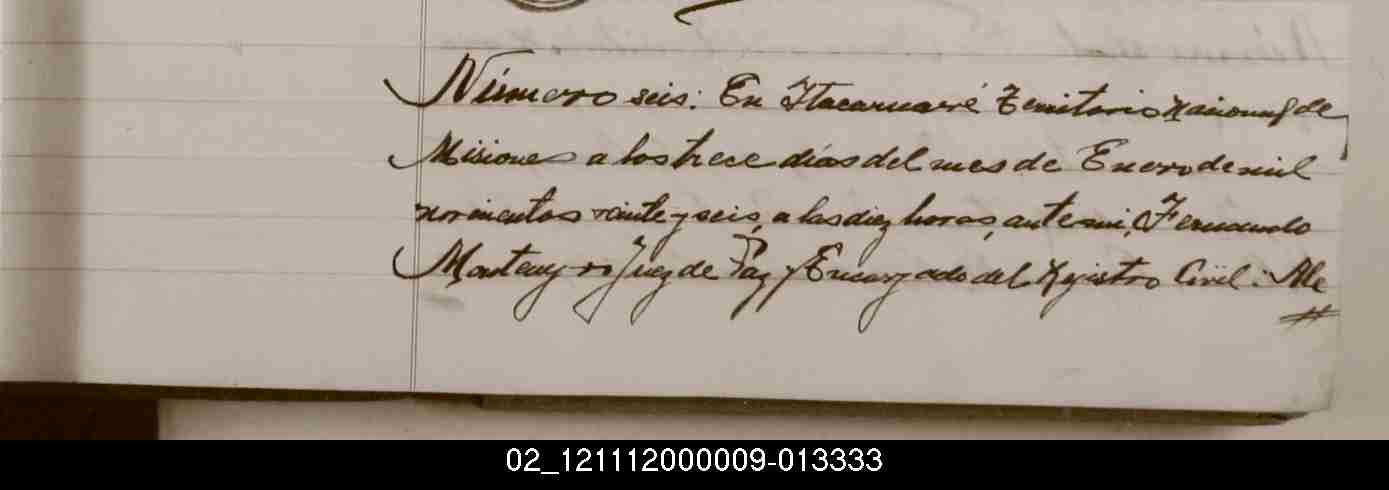 Número seis: En Itacaruaré Territorio Nacional de
Misiones a los trece días del mes de Enero de mil
novecientos veinte y seis, a las diez horas, ante mi, Fernando
Monteny ro Juez de Paz y Encargado del Registro Civil: Ale
02_121112000009-013333